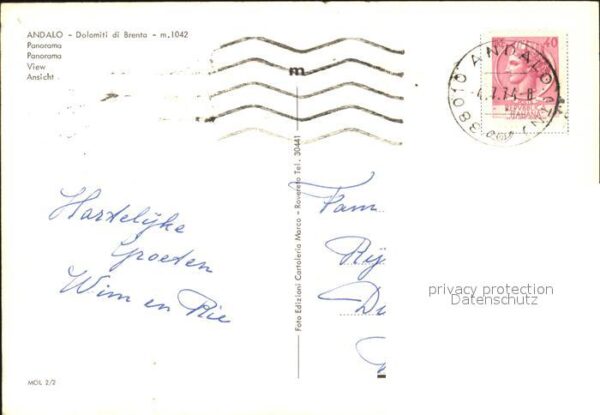 ANDALO - Dolomiti di Brenta - m.1042
Panorama
Panorama
View
Ansicht
m
40
38010 ANDALO (TN)
-4.7.74-8
Hartelijke
Groeten
Wim en Rie
Foto Edizioni Cartoleria Marco - Rovereto Tel. 30441
Fam
Rij
Du
privacy protection
Datenschutz
MOL 2/2